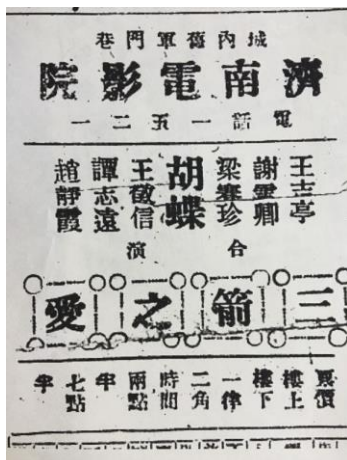 城內舊軍門巷
濟南電影院
電話一五二一
王吉亭
謝雲卿
梁賽珍
胡蝶
王徵信
譚志遠
趙靜霞
合演
三箭之愛
票價
樓上
樓下
一律
二角
時間
兩點
半
七點
半